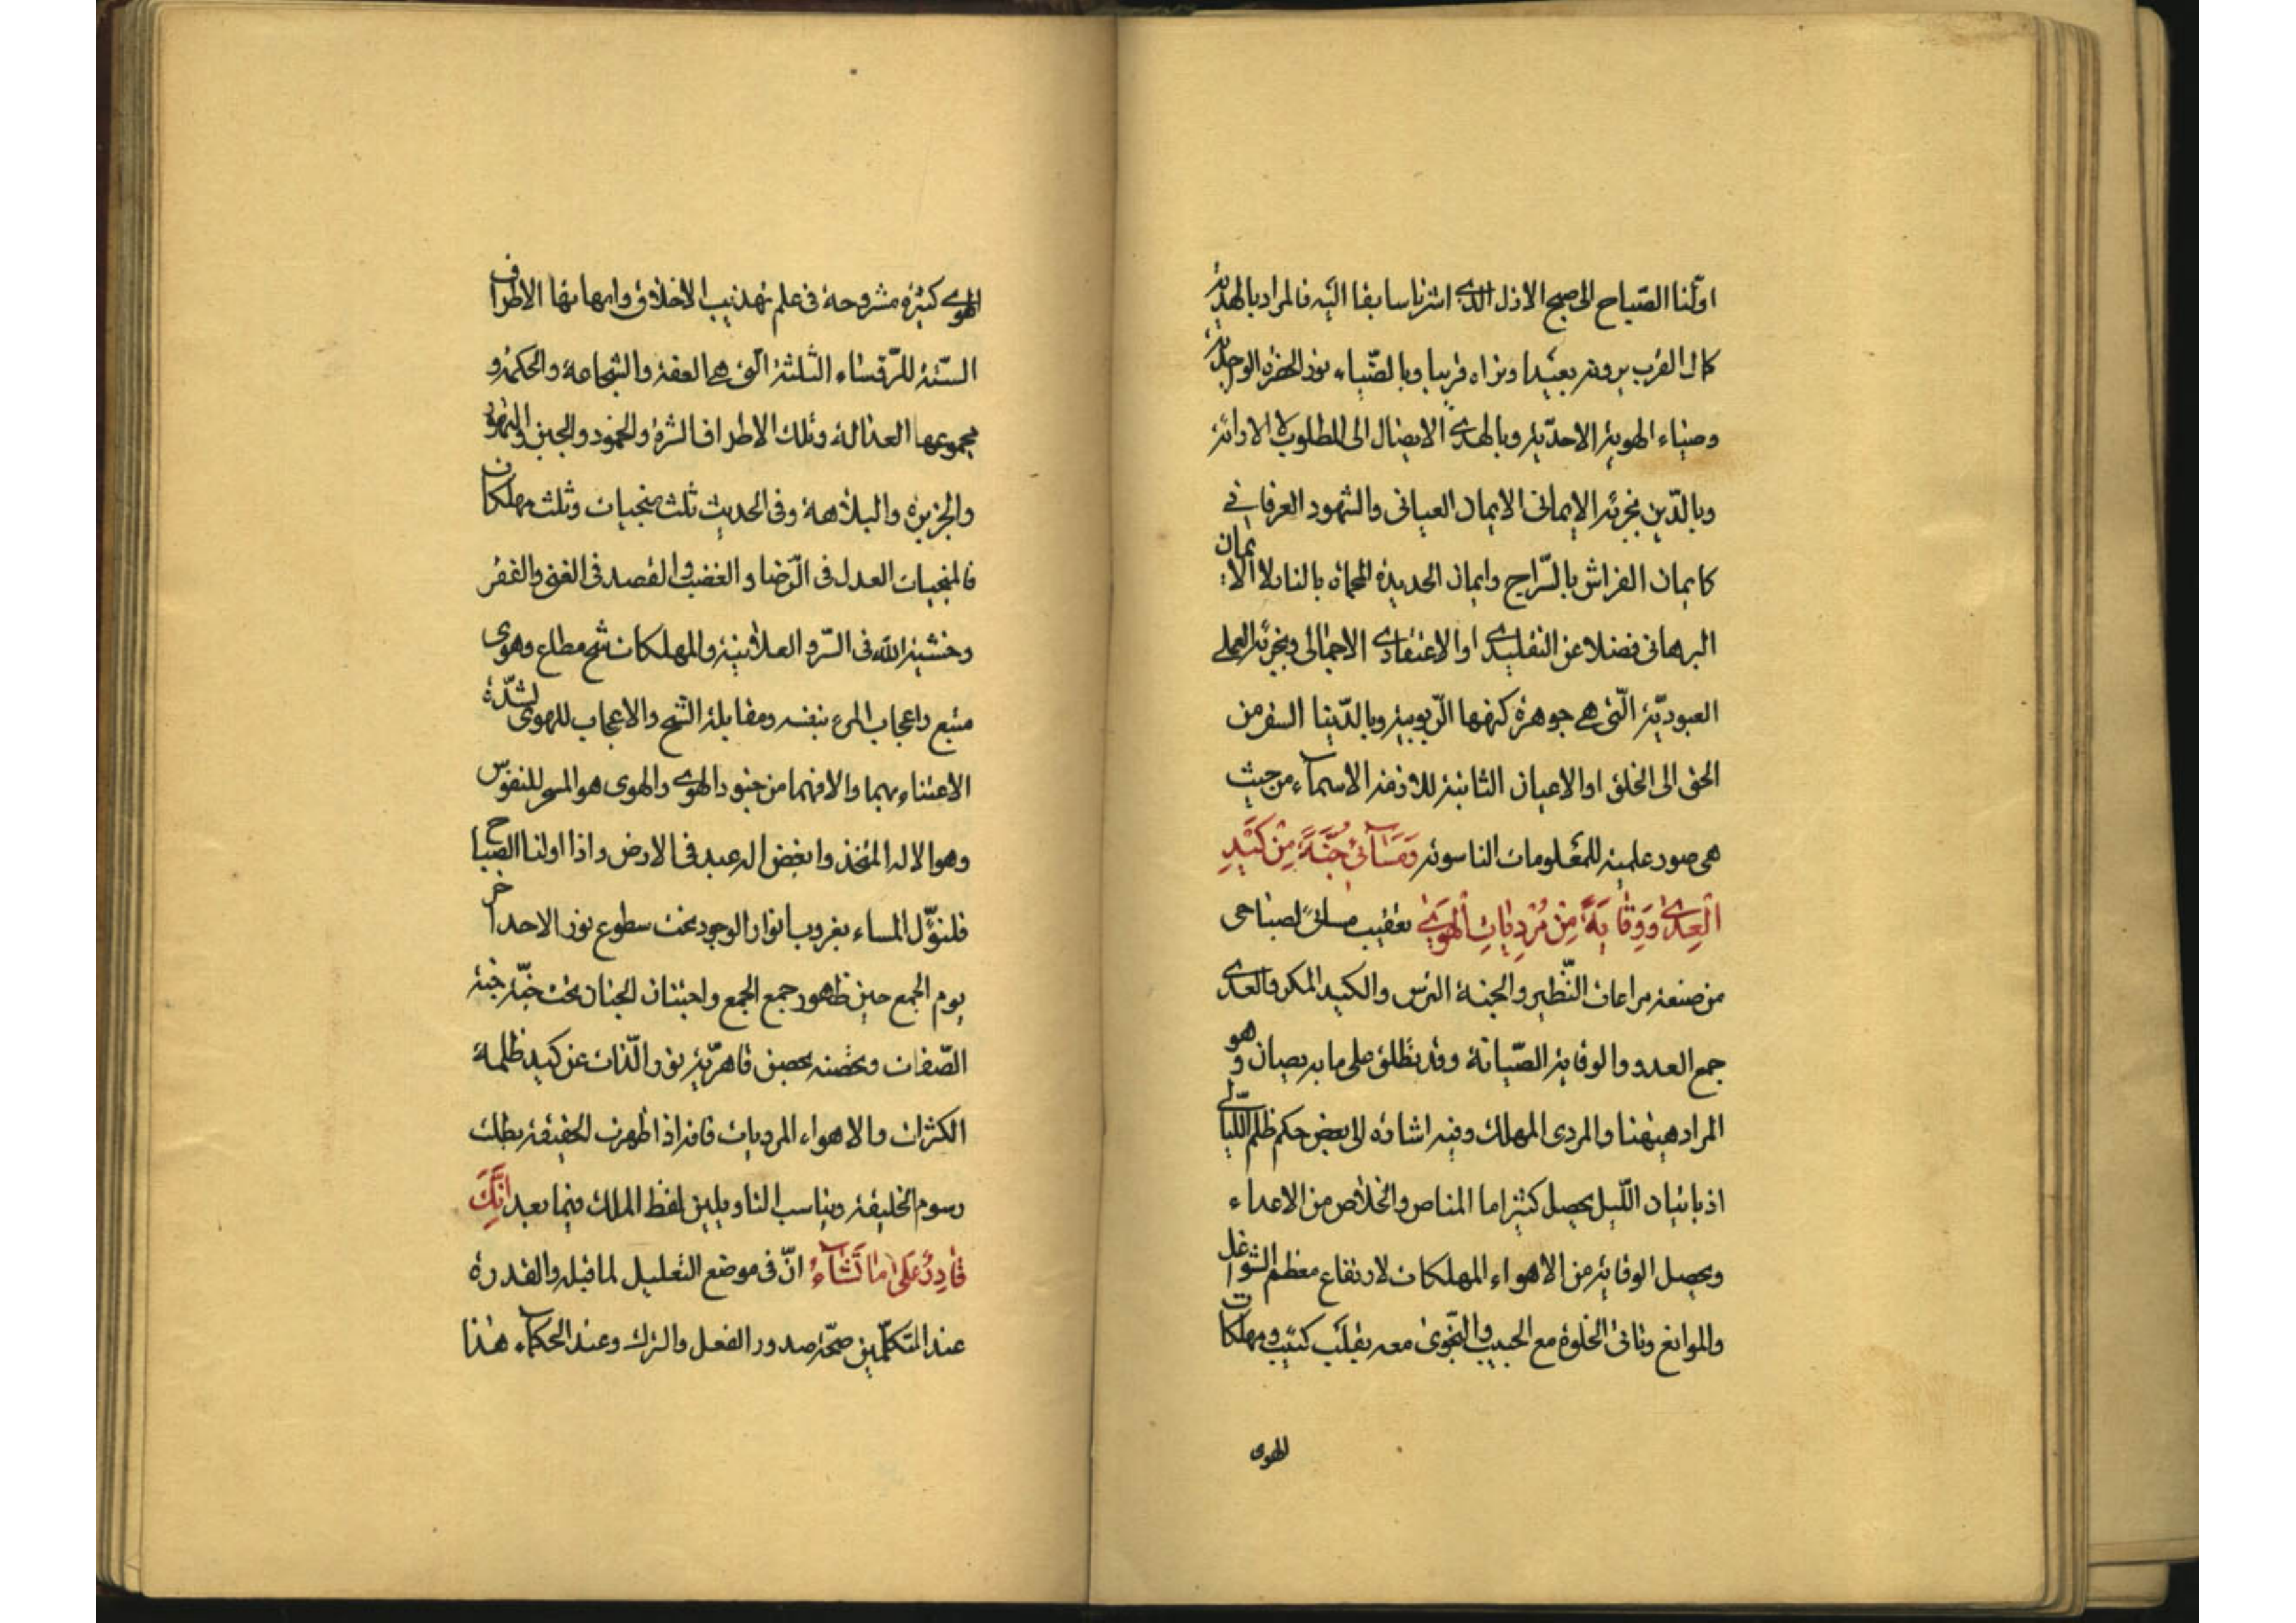 اولنا الصّباح الى صبح الازل الذى اشرنا سابقا اليه فالمراد بالهداية
كمال القرب يرونه بعيدا ونراه قريبا وبالضّياء نور الحضرة الواحدية
وضياء الهوية الاحدّية وبالهدى الايصال الى المطلوب لا الاراءة
وبالدّين بجزئه الايمانى الايمان العيانى والشهود العرفانى
كايمان الفراش بالسّراج وايمان الحديدة المحماة بالنار لا الايمان
البرهانى فضلا عن التقليدى او الاعتقادى الاجمالى وبجزئه العملى
العبوديّة الّتى هى جوهرة كنهها الرّبوبية وبالدّنيا السفر من
الحق الى الخلق او الاعيان الثابتة اللازمة الاسماء من حيث
هى صور علمية للمعلومات الناسوتية وَمَسَآئى جُنَّةً مِنْ كَيْدِ
الْعِدىٰ وَوِقايَةً مِنْ مُرْدِياتِ الْهَوىٰ تعقيب مسائى لصباحى
من صنعة مراعات النّظير والجنة الترس والكيد المكر والعدى
جمع العدو والوقاية الصّيانة وقد يطلق على ما به يصان وهو
المراد هيهنا والمردى المهلك وفيه اشارة الى بعض حكم ظلم اللّيالى
اذ باتيان اللّيل يحصل كثيرا ما المناص والخلاص من الاعداء
ويحصل الوقاية من الاهواء المهلكات لارتفاع معظم الشواغل
والموانع وتأتى الخلوة مع الحبيب والنّجوى معه بقلب كئيب ومهلكات
الهوى
الهوى كثيرة مشروحة فى علم تهذيب الاخلاق وامهاتها الاطراف
السّتة للرّؤساء الثلثة الّتى هى العفة والشجاعة والحكمة و
مجموعها العدالة وتلك الاطراف الشره والخمود والجبن والتهور
والجربزة والبلاهة وفى الحديث ثلث منجيات وثلث مهلكات
فالمنجيات العدل فى الرّضا والغضب والقصد فى الغنى والفقر
وخشية الله فى السّر والعلانية والمهلكات شح مطاع وهوى
متبع واعجاب المرء بنفسه ومقابلة الشّح والاعجاب للهوى لشدّة
الاعتناء بهما والا فهما من جنود الهوى والهوى هو المسخر للنفوس
وهو الاله المتخذ وابغض اله عبد فى الارض واذا اولنا الصباح
فلنؤّل المساء بغروب انوار الوجود تحت سطوع نور الاحد اخر
يوم الجمع حين ظهور جمع الجمع واجتنان الجنان تحت جنّة جنة
الصّفات وتحصنه بحصن قاهريّة نور الّذات عن كيد ظلمة
الكثرات والاهواء المرديات فانه اذا ظهرت الحقيقة بطلت
رسوم الخليقة ويناسب التاويلين لفظ الملك فيما بعد اِنَّكَ
قادِرٌ عَلىٰ ما تَشآءُ انّ فى موضع التعليل لما قبله والقدرة
عند المتكلّمين صحّة صدور الفعل والترك وعند الحكماء هذا